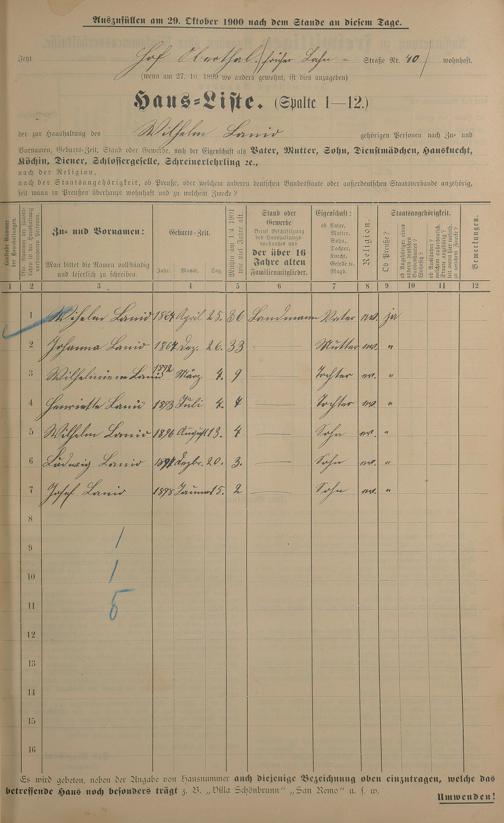 Auszufüllen am 29. Oktober 1900 nach dem Stande an diesem Tage.
Jetzt Hof Oberthal, früher Lahn - Straße Nr. 40 wohnhaft.
(wenn am 27. 10. 1899 wo anders gewohnt, ist dies anzugeben)
Haus-Liste. (Spalte 1—12.)
der zur Haushaltung des Wilhelm Lanio gehörigen Personen nach Zu- und
Vornamen, Geburts-Zeit, Stand oder Gewerbe, nach der Eigenschaft als Vater, Mutter, Sohn, Dienstmädchen, Hausknecht,
Köchin, Diener, Schlossergeselle, Schreinerlehrling ec.,
nach der Religion,
nach der Staatsangehörigkeit, ob Preuße, oder welchem anderen deutschen Bundesstaate oder außerdeutschen Staatsverbande angehörig,
seit wann in Preußen überhaupt wohnhaft und zu welchem Zwecke?
Zu- und Vornamen:
Man bittet die Namen vollständig und leserlich zu schreiben.
Geburts-Zeit.
Jahr. Monat. Tag.
Mithin am 1/4 1901 wie viel Jahre alt.
Stand oder Gewerbe
der über 16 Jahre alten Familienmitglieder.
Eigenschaft:
ob Vater, Mutter, Sohn, Tochter, Knecht, Geselle o. Magd.
Religion.
Ob Preuße?
Staatsangehörigkeit.
Bemerkungen.
1 2 3 4 5 6 7 8 9 10 11 12
1 Wilhelm Lanio 1864 April 25. 36 Landmann Vater ev. ja
2 Johanna Lanio 1867 Dez. 26. 33 Mutter ev. "
3 Wilhelmine Lanio März 4. 9 Tochter ev. "
4 Henriette Lanio 1893 Juli 4. 7 Tochter ev. "
5 Wilhelm Lanio 1896 August 13. 4 Sohn ev. "
6 Ludwig Lanio 1897 Dezbr. 20. 3. Sohn ev. "
7 Josef Lanio 1898 5. 2 Sohn ev. "
8
9 1
10 1
11 5
12
13
14
15
16
Es wird gebeten, neben der Angabe von Hausnummer auch diejenige Bezeichnung oben einzutragen, welche das
betreffende Haus noch besonders trägt z. B. „Villa Schönbrunn" „San Remo" u. s. w.
Umwenden!